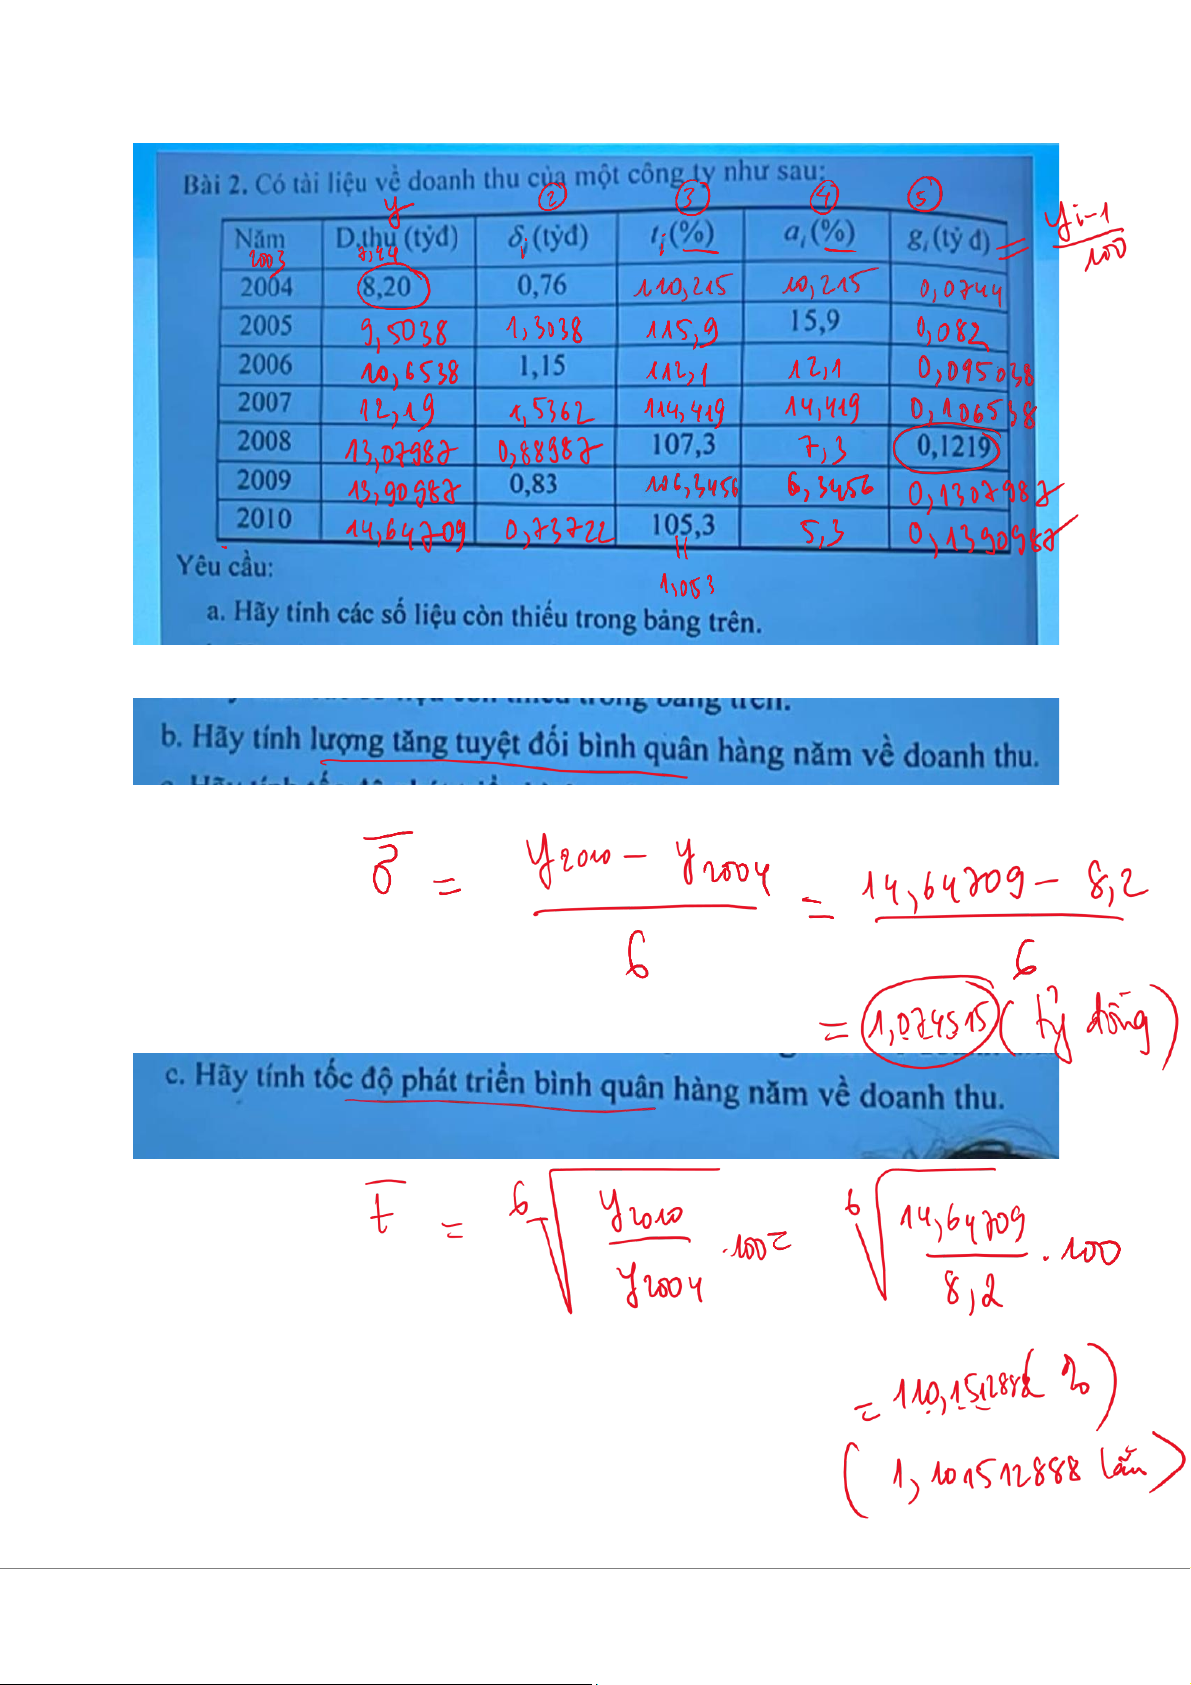 Bài 2. Có tài liệu về doanh thu của một công ty như sau:
y ② ③ ④ ⑤
Năm D.thu (tỷđ) δi (tỷđ) ti (%) ai (%) gi (tỷ đ) = yi-1/100
2003 7,44
2004 8,20 0,76 110,215 10,215 0,0744
2005 9,5038 1,3038 115,9 15,9 0,082
2006 10,6538 1,15 112,1 12,1 0,095038
2007 12,19 1,5362 114,419 14,419 0,106538
2008 13,07987 0,88987 107,3 7,3 0,1219
2009 13,90987 0,83 106,3456 6,3456 0,1307987
2010 14,64709 0,73722 105,3 5,3 0,1390987
Yêu cầu:
" 1,053
a. Hãy tính các số liệu còn thiếu trong bảng trên.
b. Hãy tính lượng tăng tuyệt đối bình quân hàng năm về doanh thu.
δ̄ = (y2010 - y2004)/6 = (14,64709 - 8,2)/6
= 1,074515 (tỷ đồng)
c. Hãy tính tốc độ phát triển bình quân hàng năm về doanh thu.
t̄ = ⁶√(y2010/y2004) .100 = ⁶√(14,64709/8,2) . 100
= 110,1512888 (%)
(1,101512888 lần)